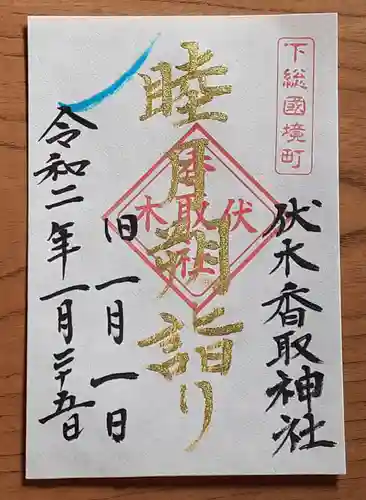 下総國境町
伏木香取神社
睦月朔詣り
伏木香取社
旧一月一日
令和二年一月二十五日